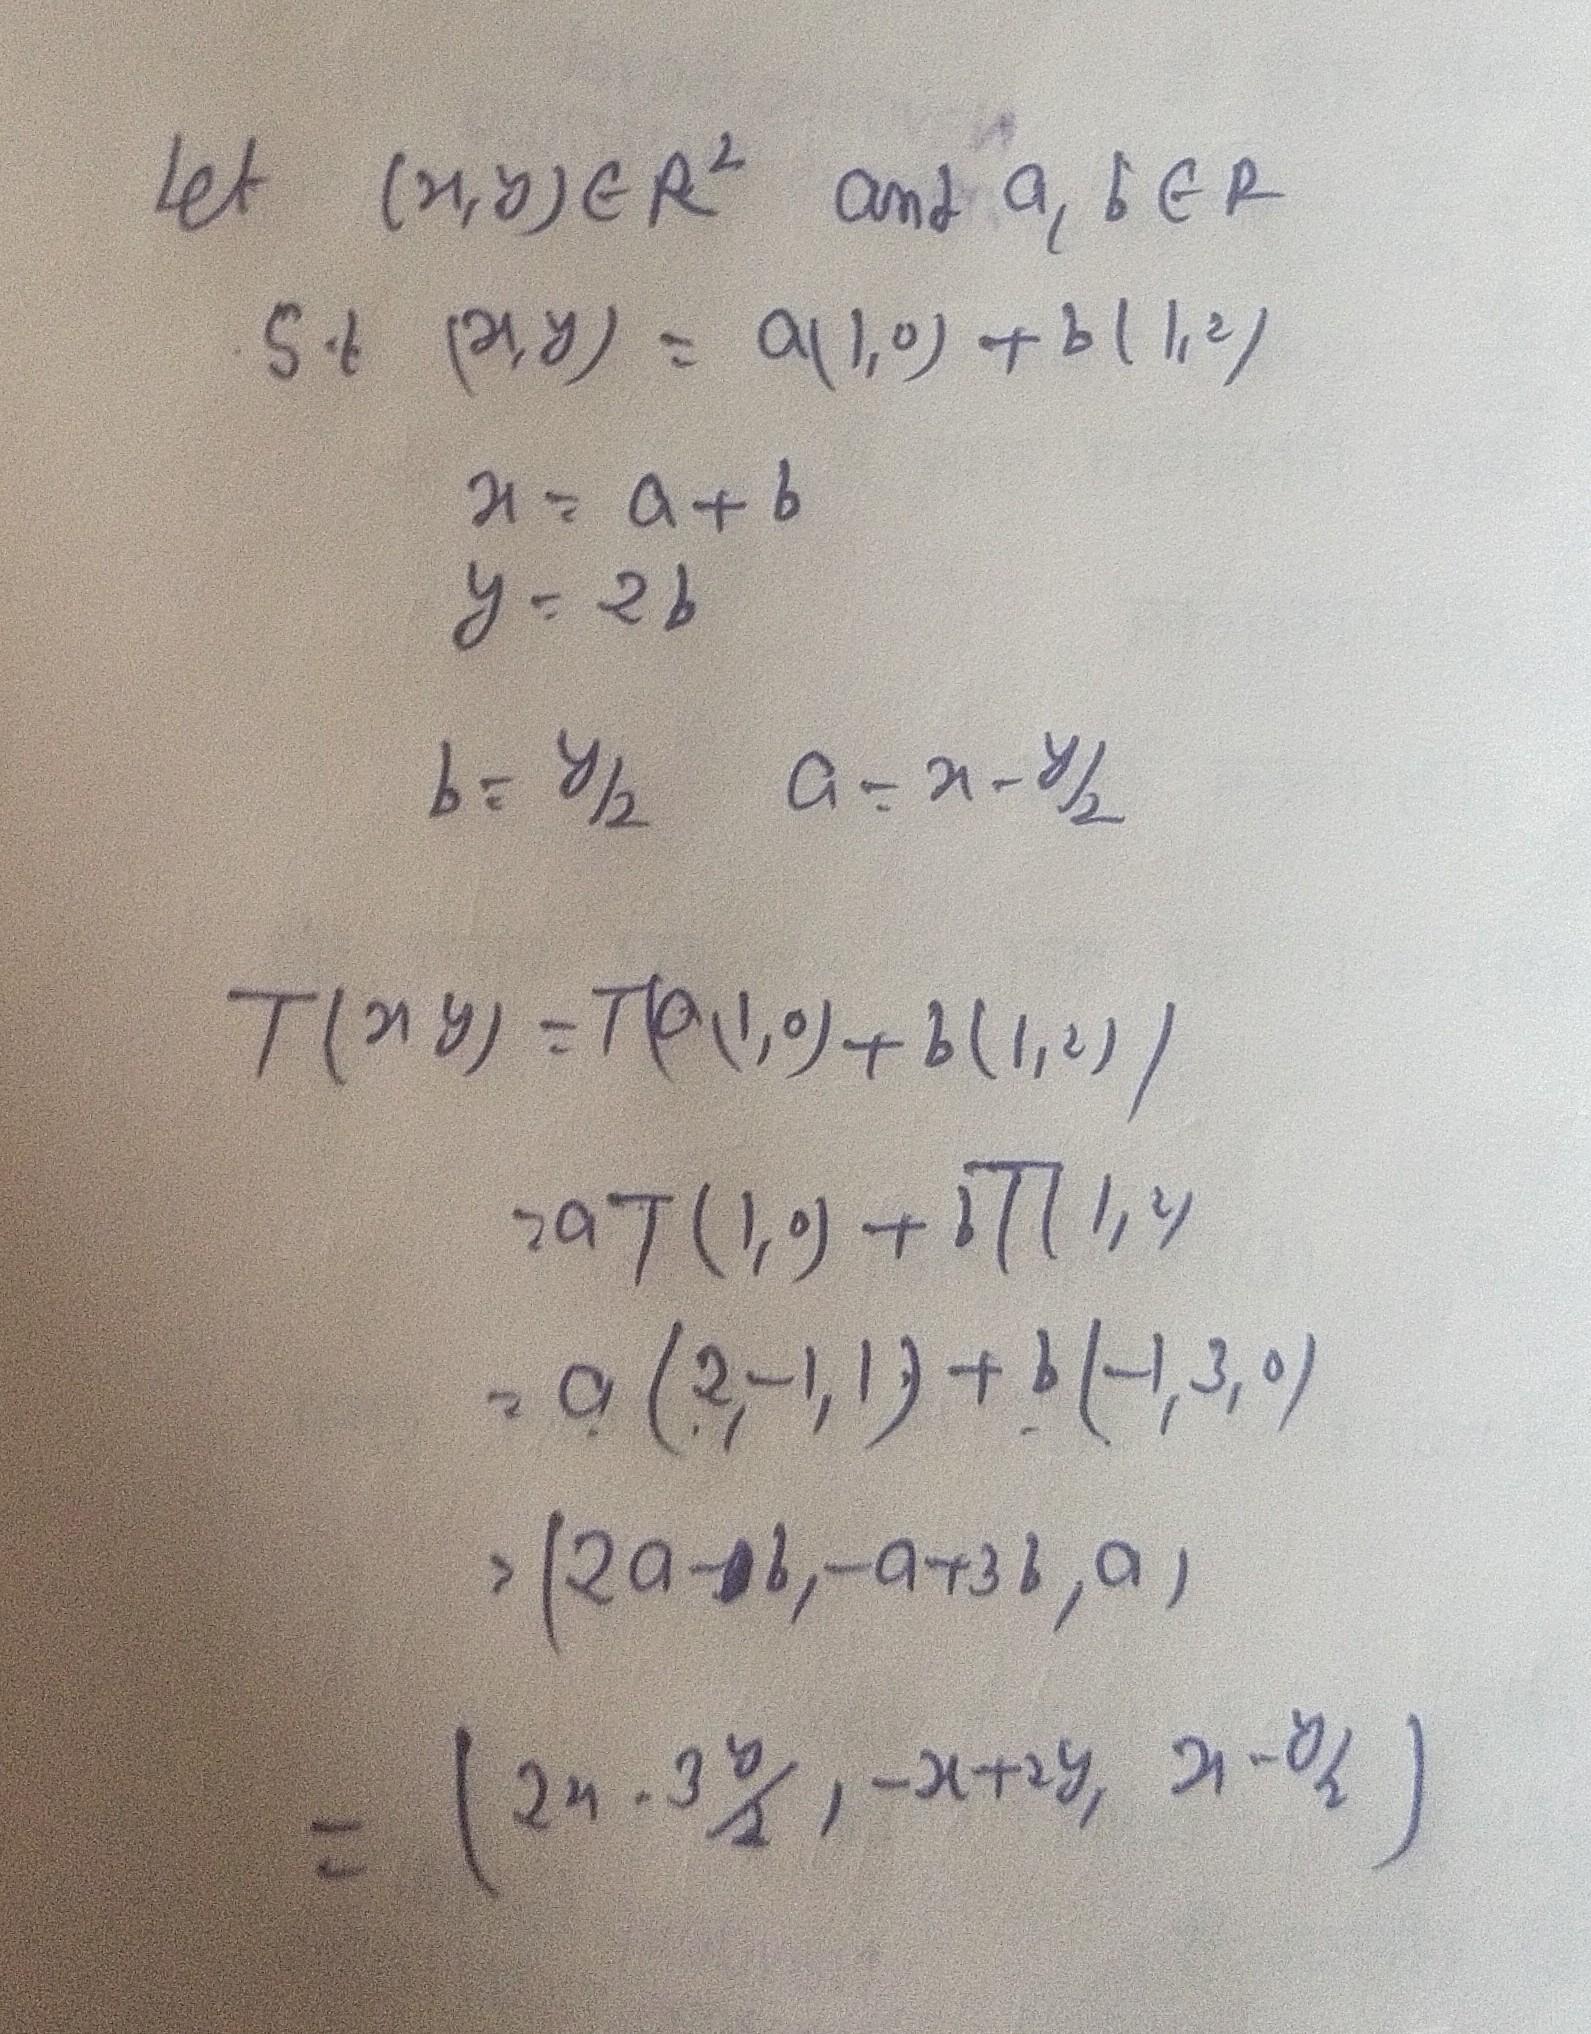 Let (x,y) ∈ R² and a, b ∈ R
S.t (x,y) = a(1,0) + b(1,2)
x = a + b
y = 2b
b = y/2 a = x - y/2
T(x y) = T(a(1,0) + b(1,2))
= aT(1,0) + bT(1,2)
= a(2,-1,1) + b(-1,3,0)
= (2a-b, -a+3b, a)
= (2x - 3y/2, -x+2y, x - y/2)